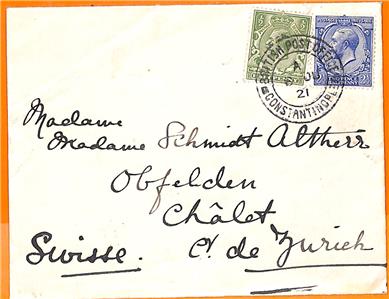 BRITISH POST OFFICE
A
21
CONSTANTINOPLE
Madame
Madame Schmidt Altherr
Obfelden
Châlet
Suisse. Ct. de Zurich